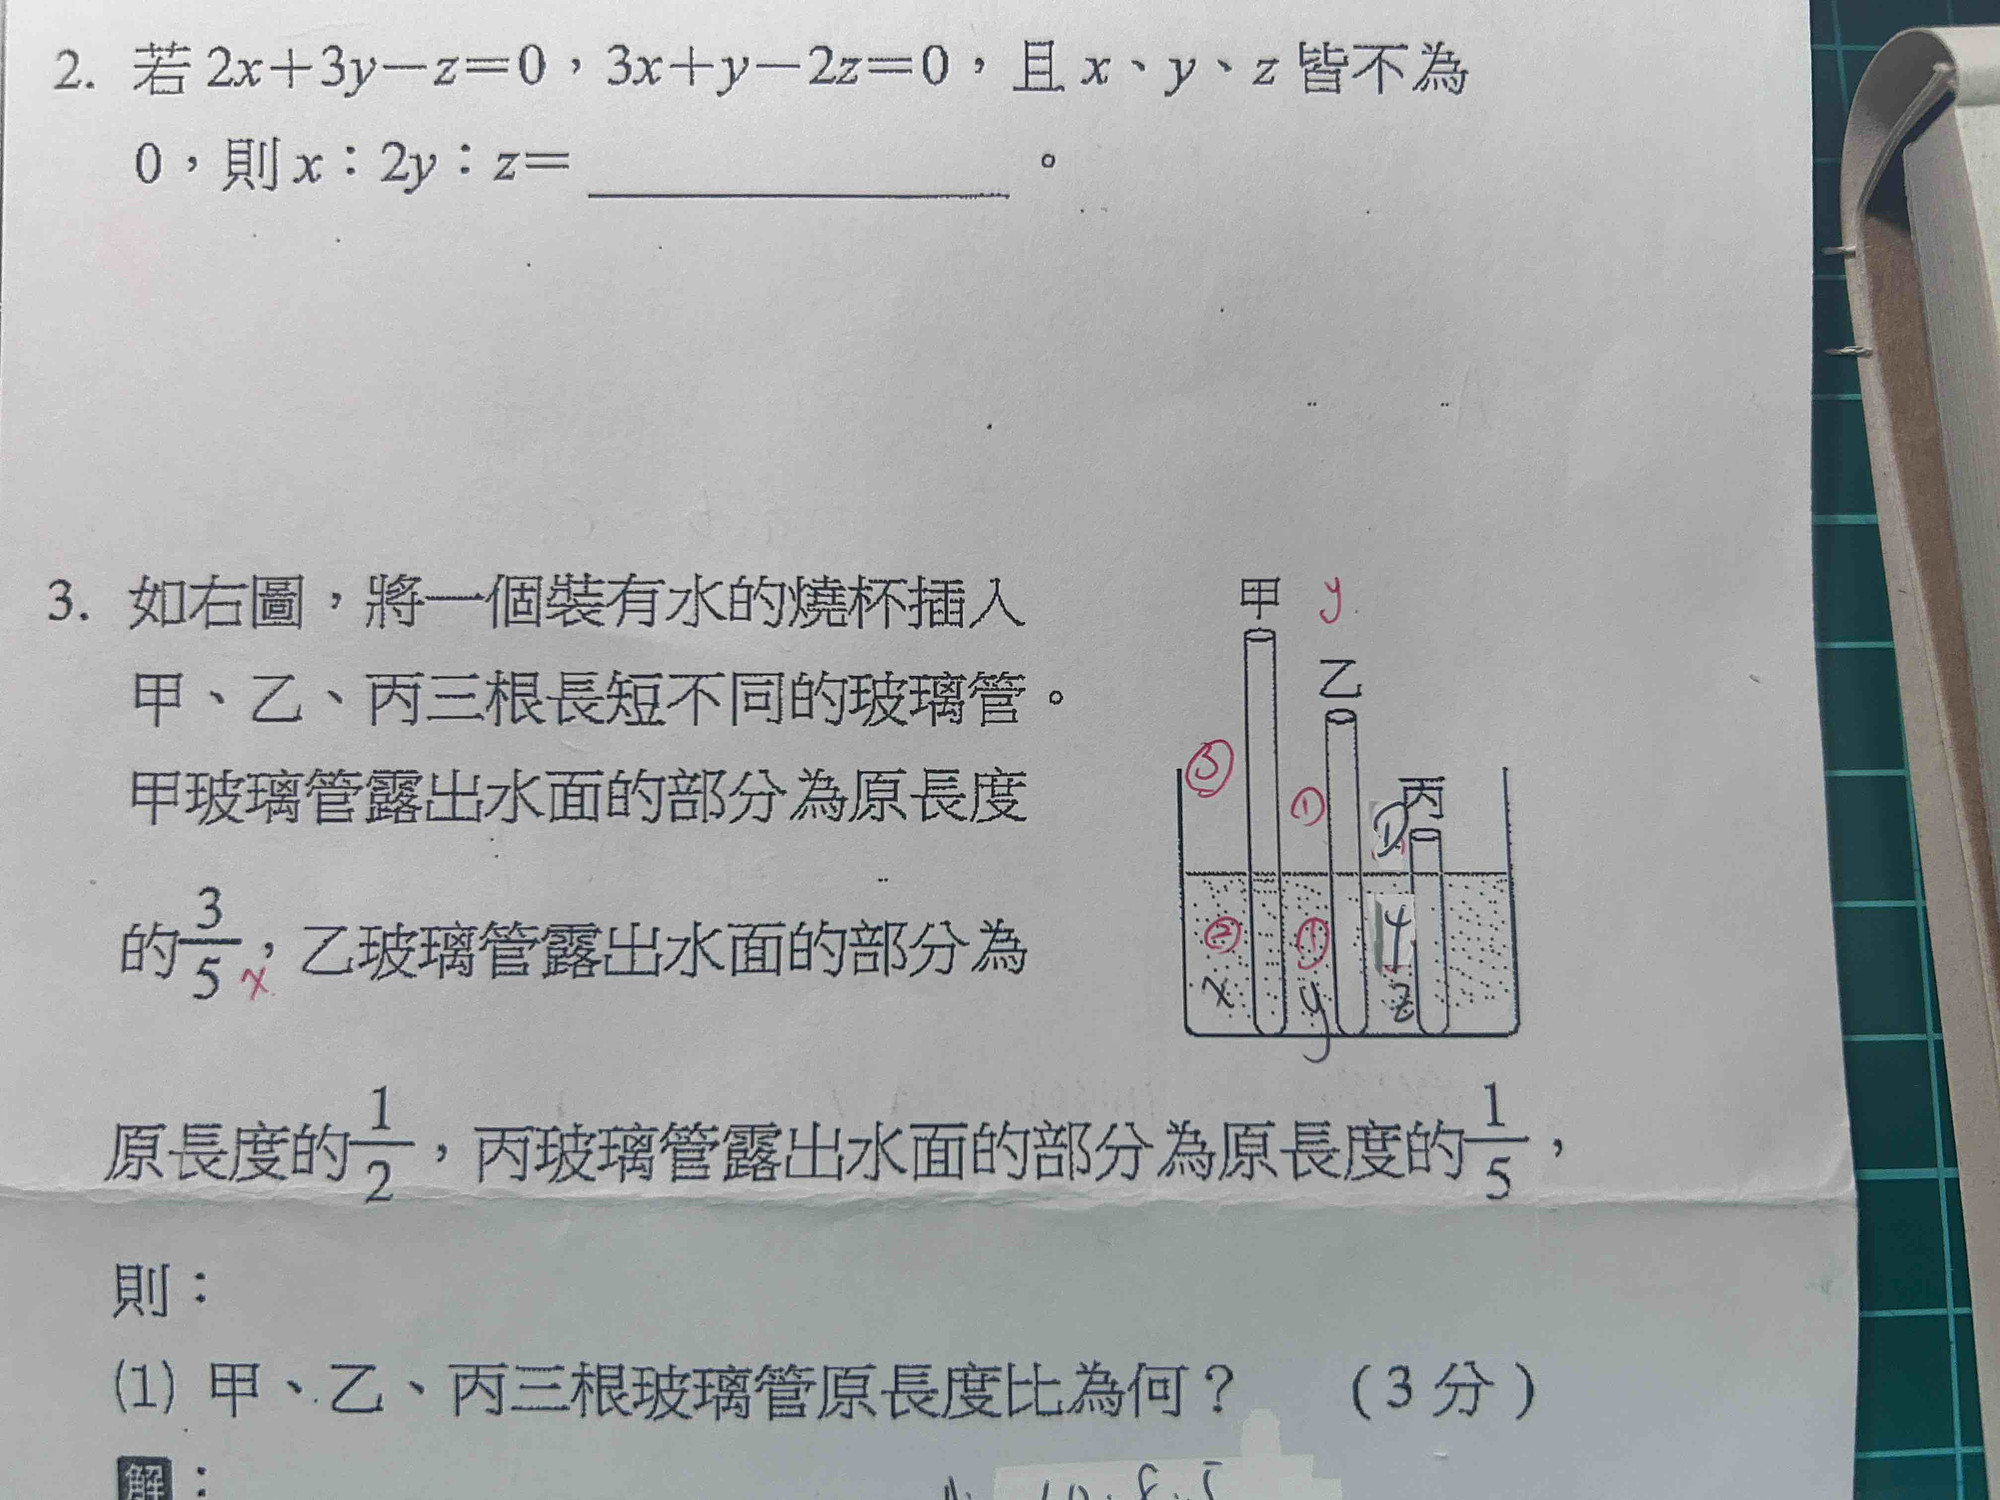 2. 若 2x+3y−z=0，3x+y−2z=0，且 x、y、z 皆不為
0，則 x：2y：z=＿＿＿＿＿＿。
3. 如右圖，將一個裝有水的燒杯插入
甲、乙、丙三根長短不同的玻璃管。
甲玻璃管露出水面的部分為原長度
的3/5 x，乙玻璃管露出水面的部分為
甲 y
乙
丙
③ ① ①
② ① 4
x y z
原長度的1/2，丙玻璃管露出水面的部分為原長度的1/5，
則：
(1) 甲、乙、丙三根玻璃管原長度比為何？ （3 分）
解：